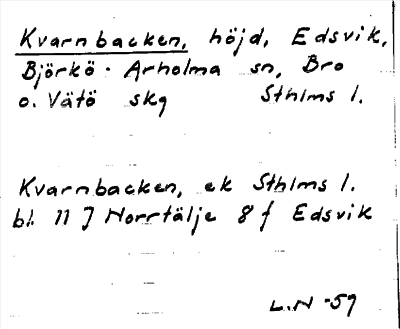 Kvarnbacken, höjd, Edsvik,
Björkö-Arholma sn, Bro
o. Vätö skg Sthlms l.
Kvarnbacken, ek Sthlms l.
bl. 11 J Norrtälje 8 f Edsvik
L.N -59